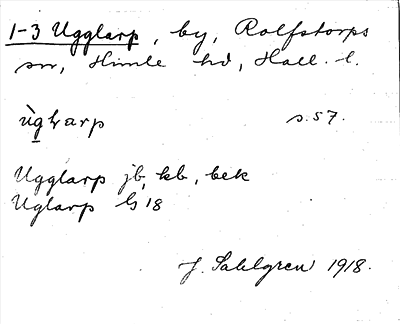 1-3 Ugglarp, by, Rolfstorps
sn, Himle hd, Hall. l.
s. 57.
Ugglarp jb, kb, bek
Uglarp G 18
J. Sahlgren 1918.